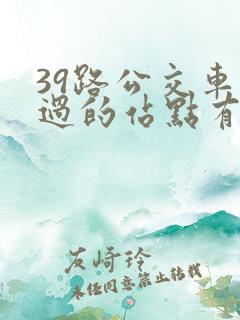 39路公交車
過的佔點有
友崎玲
未经同意禁止转载